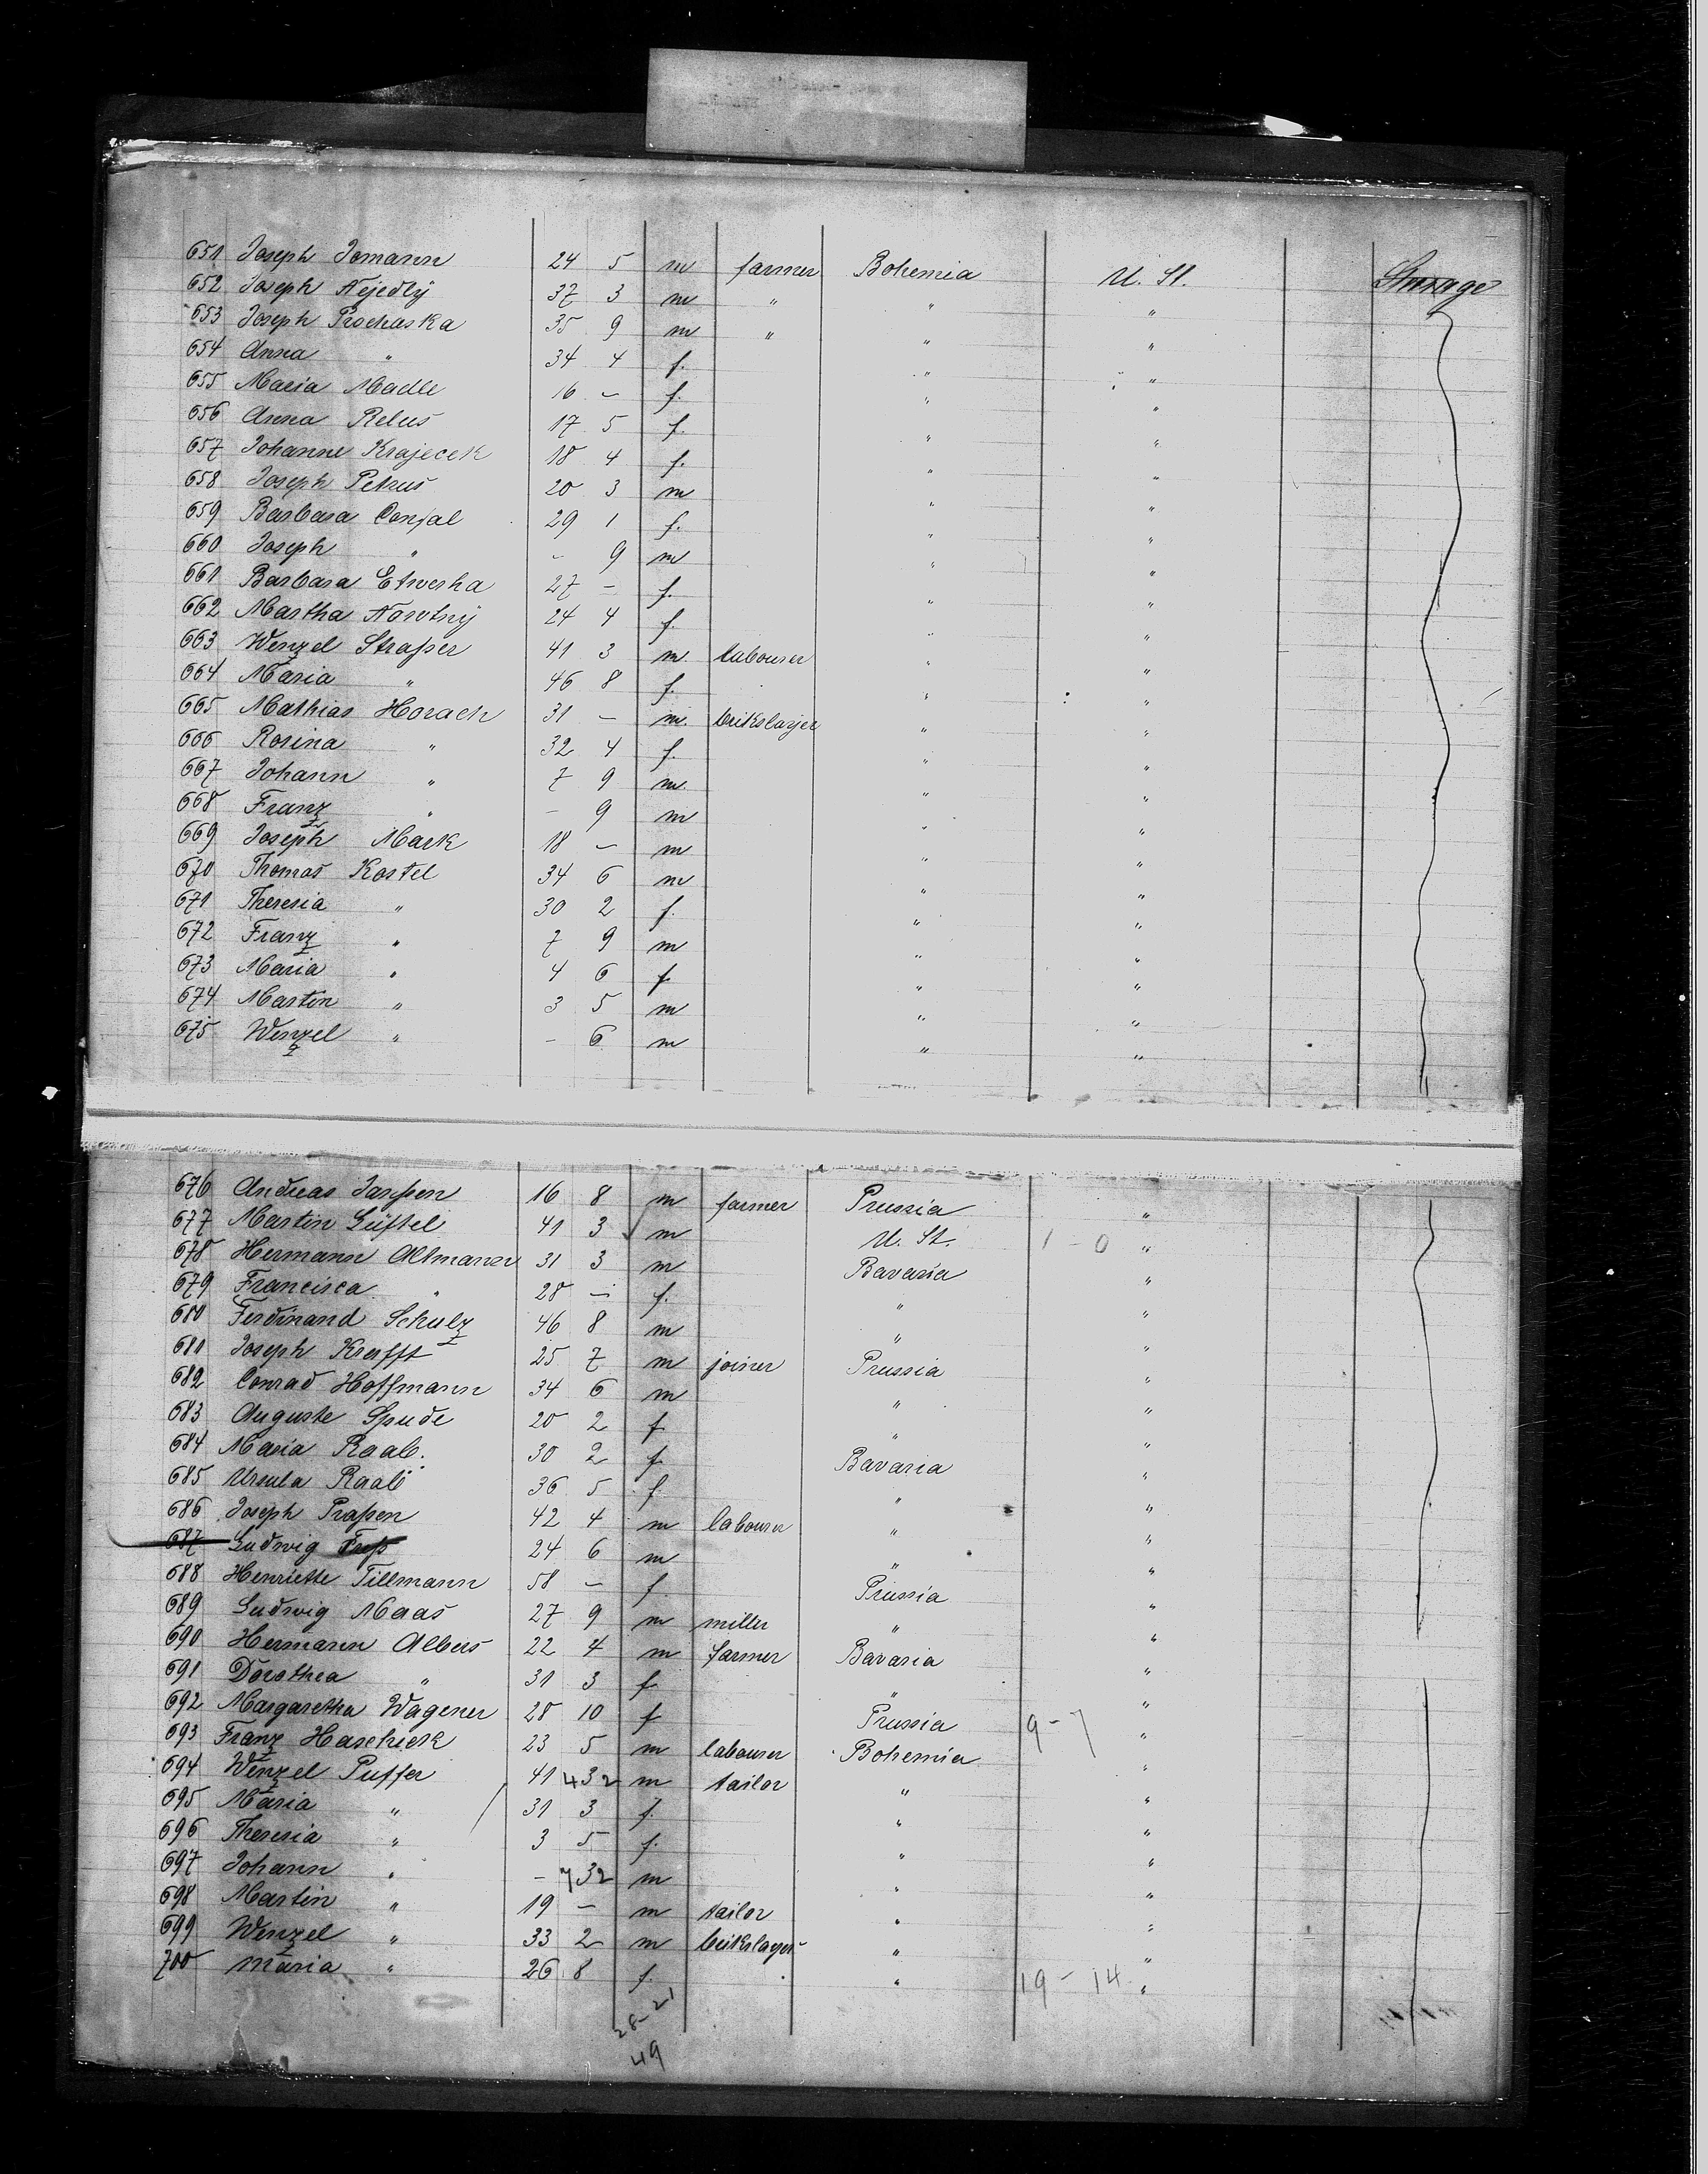 651 Joseph Tomann 24 5 m farmer Bohemia U. St. Steerage
652 Joseph Nejedlÿ 37 3 m " " "
653 Joseph Prochaska 35 9 m " " "
654 Anna " 34 4 f. " "
655 Maria Madle 16 - f. " "
656 Anna Rebus 17 5 f. " "
657 Johanne Krajecek 18 4 f. " "
658 Joseph Petrus 20 3 m " "
659 Barbara Conjal 29 1 f. " "
660 Joseph " - 9 m " "
661 Barbara 27 - f. " "
662 Martha Nowotnÿ 24 4 f. " "
663 Wenzel Straßer 41 3 m labourer " "
664 Maria " 46 8 f. " "
665 Mathias Horach 31 - m. brikslarjer " "
666 Rosina " 32 4 f. " "
667 Johann " 7 9 m. " "
668 Franz " - 9 m " "
669 Joseph Mark 18 - m " "
670 Thomas Kostel 34 6 m " "
671 Theresia " 30 2 f. " "
672 Franz " 7 9 m " "
673 Maria " 4 6 f. " "
674 Martin " 3 5 m " "
675 Wenzel " - 6 m " "
676 Andreas Janßen 16 8 m farmer Prussia "
677 Martin Lüftel 41 3 m U. St. 1 - 0 "
678 Hermann Altmann 31 3 m Bavaria "
679 Francisca " 28 - f. " "
680 Ferdinand Schulz 46 8 m " "
681 Joseph Krafft 25 7 m joiner Prussia "
682 Conrad Hoffmann 34 6 m " "
683 Auguste Spude 20 2 f " "
684 Maria Raab. 30 2 f Bavaria "
685 Ursula Raab 36 5 f " "
686 Joseph Praßen 42 4 m labourer " "
687 Ludwig Fuß 24 6 m " "
688 Henriette Tillmann 58 - f Prussia "
689 Ludwig Maas 27 9 m miller " "
690 Hermann Albers 22 4 m farmer Bavaria "
691 Dorothea " 31 3 f " "
692 Margaretha Wagener 28 10 f Prussia 9 - 7 "
693 Franz Haschiek 23 5 m labourer Bohemia "
694 Wenzel Puffer 41 432 m tailor " "
695 Maria " 31 3 f. " "
696 Theresia " 3 5 f. " "
697 Johann " - 732 m " "
698 Martin " 19 - m tailor " "
699 Wenzel " 33 2 m brikslayer " "
700 Maria " 26 8 f. " 19 - 14 "
28-21
49